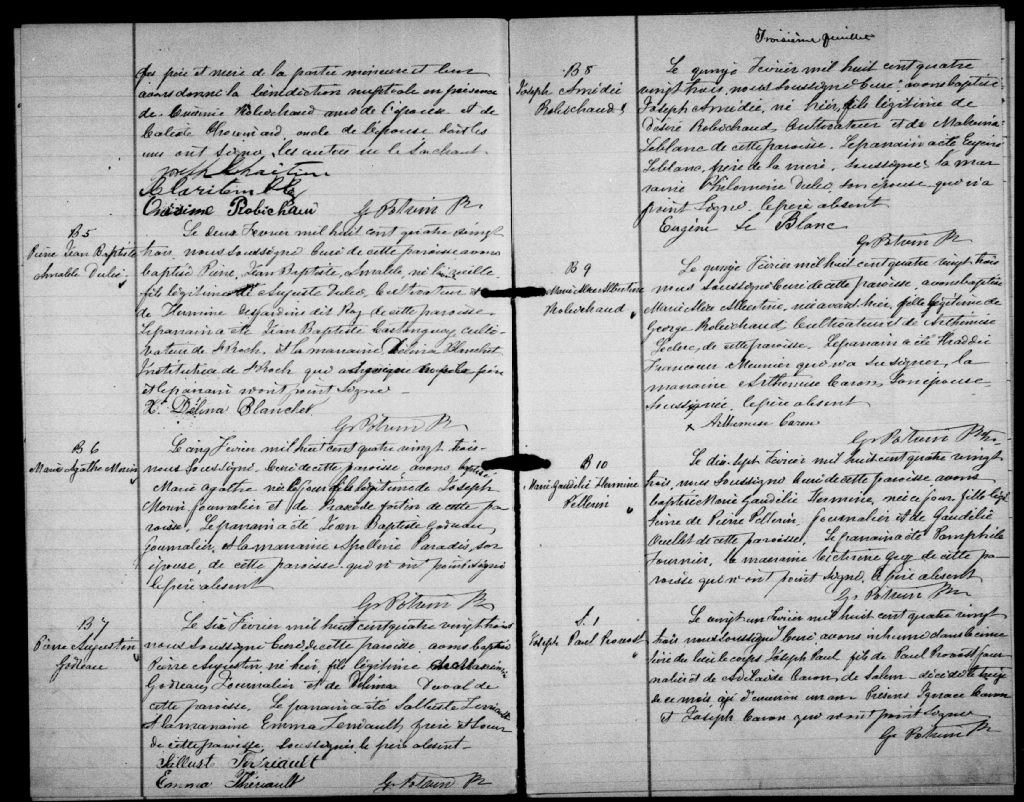 des père et mère de la partie mineure et leur
avons donné la bénédiction nuptiale en présence
de Onésime Robichaud ami de l'époux et de
Calixte Chouinard, oncle de l'épouse dont les
uns ont signé, les autres ne le sachant.
Joseph
Onésime Robichaud G. Potvin Ptr
B 5
Pierre Jean Baptiste
Amable Dubé
Le deux Février mil huit cent quatre vingt
trois, nous soussigné Curé de cette paroisse avons
baptisé Pierre, Jean Baptiste, Amable, né la veille
fils légitime de Auguste Dubé, Cultivateur et
de Hermine Desjardins dit Roy de cette paroisse.
Le parrain a été Jean Baptiste Castonguay, culti-
vateur de St Roch, et la marraine Délina Blanchet
Institutrice de St Roch qui a signé le père
et le parrain n'ont point signé
X Délina Blanchet
G. Potvin Ptr
B 6
Marie Agathe Morin
Le cinq Février mil huit cent quatre vingt trois
nous soussigné Curé de cette paroisse, avons baptisé
Marie Agathe née le jour fille légitime de Joseph
Morin journalier et de Fortin de cette pa-
roisse. Le parrain a été Jean Baptiste Godreau
Journalier, et la marraine Apolline Paradis, son
épouse, de cette paroisse qui n'ont point signé
le père absent
G. Potvin Ptr
B 7
Pierre Augustin
Godreau
Le six Février mil huit cent quatre vingt trois
nous soussigné Curé de cette paroisse, avons baptisé
Pierre Augustin né hier, fils légitime de
Godreau, Journalier et de Délima Duval de
cette paroisse. Le parrain a été Salluste Terriault
et la marraine Emma Terriault, frère et soeur
de cette paroisse, soussignés le père absent-
Sallust Terriault
Emma Thériault G. Potvin Ptr
Troisième feuillet
B 8
Joseph Amédée
Robichaud
Le quinze Février mil huit cent quatre
vingt trois, nous soussigné Curé, avons baptisé
Joseph Amédée, né hier, fils légitime de
Désiré Robichaud, Cultivateur et de
Leblanc de cette paroisse. Le parrain a été Eugène
Leblanc, père de la mère, soussigné; la mar-
raine Philomène Dubé, son épouse, qui n'a
point signé. le père absent
Eugène Le Blanc
G. Potvin Ptr
B 9
Marie Mary Albertine
Robichaud
Le quinze Février mil huit cent quatre vingt trois
nous soussigné Curé de cette paroisse, avons baptisé
Marie Albertine, née avant hier, fille légitime de
George Robichaud Cultivateur et de Arthémise
Leclerc, de cette paroisse. Le parrain a été Thaddée
Francoeur Meunier qui n'a su signer, la
marraine Arthémise Caron, son épouse
soussignée, le père absent
x Arthemise Caron
G. Potvin Ptr
B 10
Marie Gaudélie Hermine
Pellerin
Le dix-sept Février mil huit cent quatre vingt
trois, nous soussigné Curé de cette paroisse avons
baptisé Marie Gaudélie Hermine, née ce jour, fille légi-
time de Pierre Pellerin, Journalier et de Gaudélie
Ouellet de cette paroisse. Le parrain a été Pamphile
Fournier, la marraine Victorine Guy de cette pa-
roisse qui n'ont point signé, le père absent
G. Potvin Ptr
S. 1
Joseph Paul Provost
Le vingt un Février mil huit cent quatre vingt
trois nous soussigné Curé avons inhumé dans le cime-
tière du lieu le corps Joseph Paul fils de Paul Provost jour-
nalier et de Adélaide Caron de Salem, décédé le treize
de ce mois, agé d'environ un an. Présens Ignace Caron
et Joseph Caron qui n'ont point signé
G. Potvin Ptr